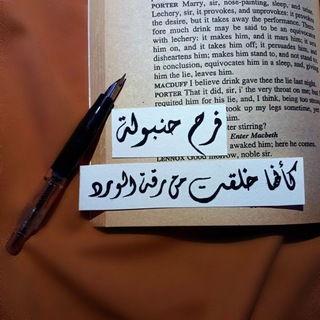 PORTER Marry, sir, nose-painting, sleep, and urine.
Lechery, sir, it provokes, and unprovokes: it provokes
the desire, but it takes away the performance. There-
fore much drink may be said to be an equivocator
with lechery: it makes him, and it mars him; it sets
him on, and it takes him off; it persuades him, and
disheartens him; makes him stand to, and not stand to;
in conclusion, equivocates him in a sleep, and, giving
him the lie, leaves him.
MACDUFF I believe drink gave thee the lie last night.
PORTER That it did, sir, i' the very throat on me; but I
requited him for his lie, and, I think, being too strong
took up my legs sometime, yet
فرح حنبولة
stirring?
Enter Macbeth
awaked him; here he comes.
LENNOX Good morrow, noble sir.
كأنها خلقت من رقة الورد